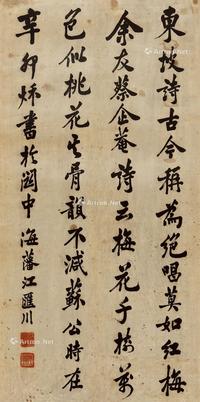 東坡詩古今稱為絕唱莫如紅梅
余友蔡企菴詩云梅花千樹萬
色似桃花其骨韻不減蘇公時在
辛卯秌書於閩中 海藩江匯川